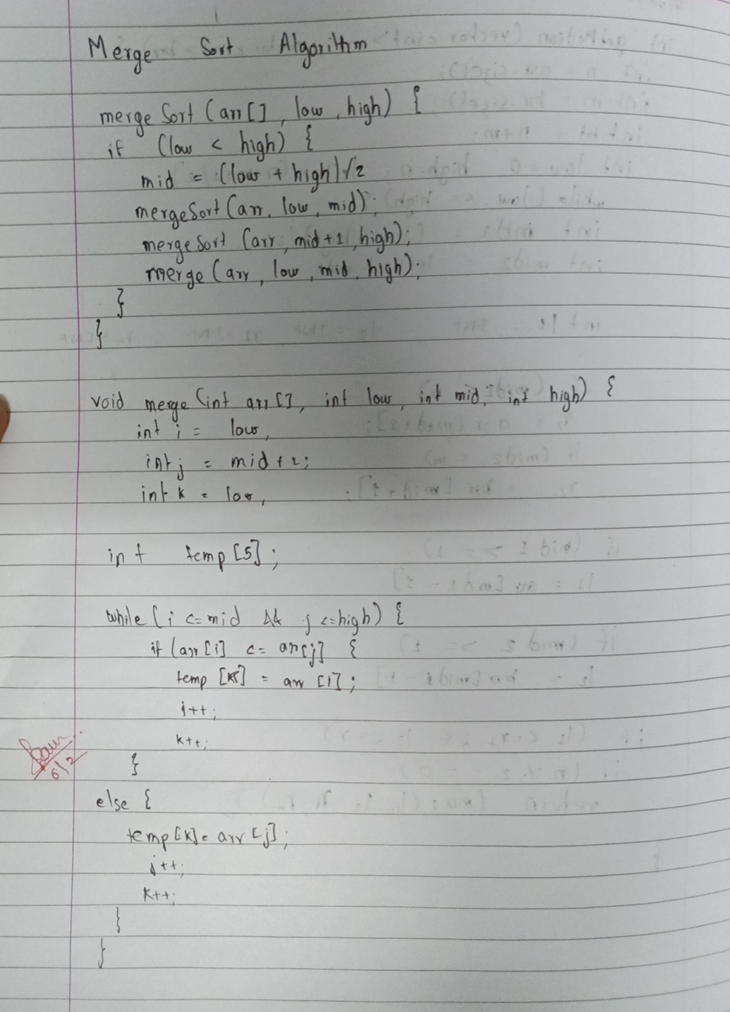 Merge Sort Algorithm
merge Sort (arr[] , low , high) {
if (low < high) {
mid = (low + high)/2
mergeSort (arr, low, mid);
merge Sort (arr, mid+1, high);
merge (arr, low, mid, high);
}
}
void merge (int arr[], int low, int mid, int high) {
int i = low,
int j = mid+1;
int k = low,
int temp [5];
while (i <= mid && j <= high) {
if (arr[i] <= arr[j] {
temp [k] = arr [i];
i++;
k++;
}
else {
temp[k] = arr[j];
j++;
k++;
}
}
6/2